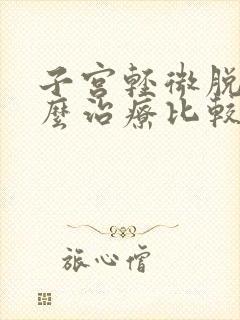 子宫轻微脱
麼治療比較
旅心僧